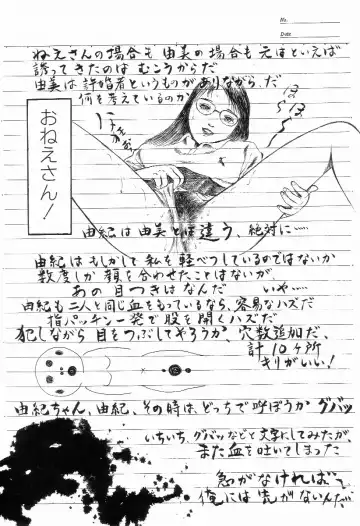 No.
Date
ねえさんの場合も由美の場合も元はといえば
誘ってきたのは むこうからだ
由美は許婚者というものがありながら、だ
何を考えているのか
おねえさん!
ほら
ほら
由紀は由美とは違う、絶対に……
由紀はもしかして私を軽べつしているのではないか
数度しか顔を合わせたことはないが
あの目つきはなんだ いや……
由紀も二人と同じ血をもっているなら、容易なハズだ
指パッチン一発で股を開くハズだ
犯しながら目をつぶしてやろうか、穴数追加だ、
計10ヶ所
きりがいい!
由紀ちゃん、由紀、その時は、どっちで呼ぼうか グバッ
いちいち、グバッなどと文字にしてみたが、
また血を吐いてしまった
急がなければ
俺には先がないんだ、